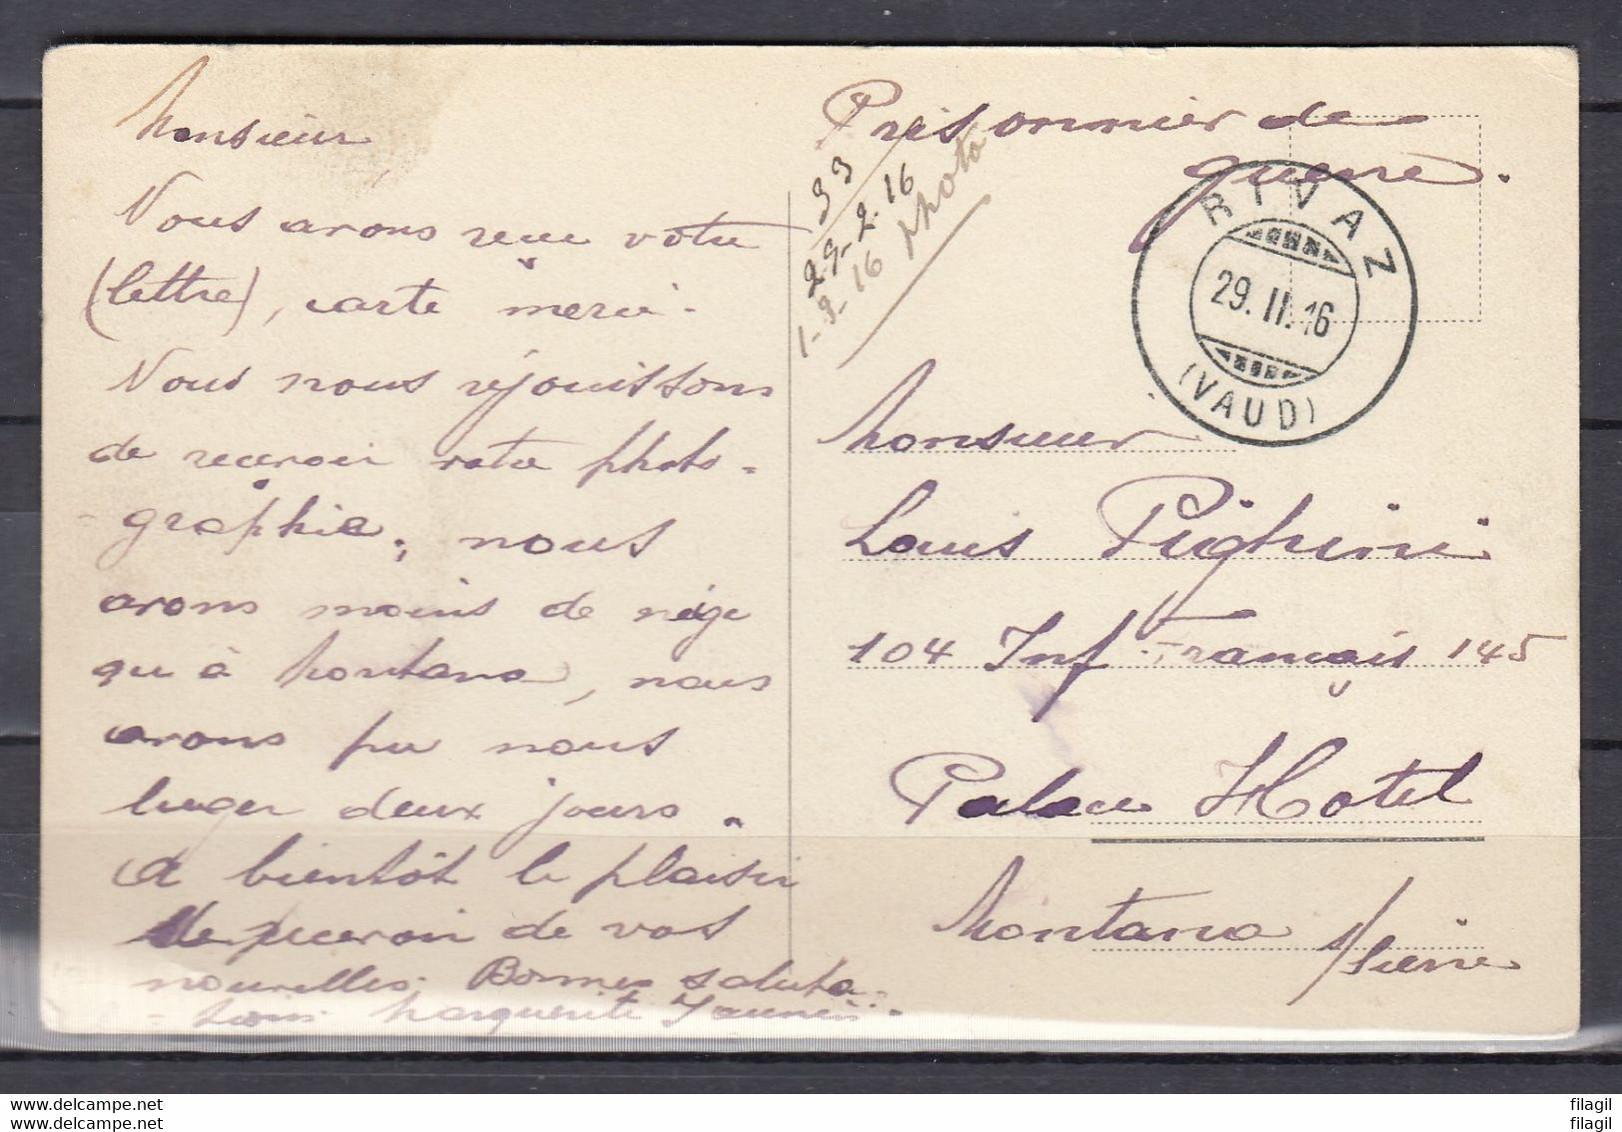 Monsieur,
Nous avons reçu votre
(lettre), carte merci.
Nous nous réjouissons
de recevoir votre photo-
-graphie, nous
avons moins de neige
qu'à Montana, nous
avons pu nous
luger deux jours.
A bientôt le plaisir
de recevoir de vos
nouvelles. Bonnes saluta-
-tions. Marguerite
33
29-2-16
1-3-16 photo
Prisonnier de
guerre.
RIVAZ
29.II.16
(VAUD)
Monsieur
Louis Pighini
104 Inf Français 145
Palace Hotel
Montana s/Sierre
delcampe.net
delcampe.net
filagil
filagil